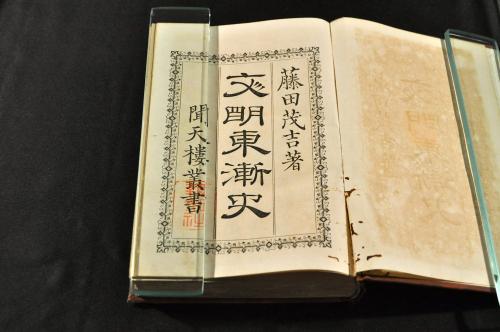 藤田茂吉著
文明東漸史
聞天樓叢書